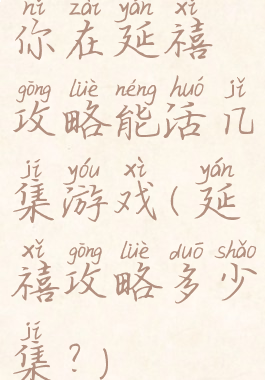 nǐ zài yán xǐ
你在延禧
gōng lüè néng huó jǐ
攻略能活几
jí yóu xì yán
集游戏(延
xǐ gōng lüè duō shǎo
禧攻略多少
jí
集?)